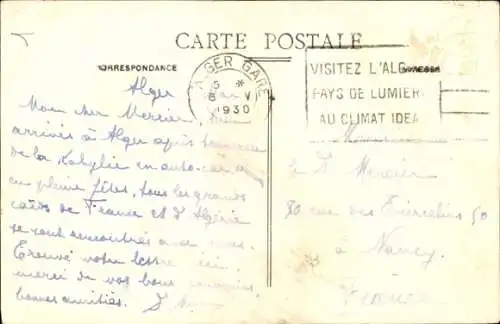 CARTE POSTALE
CORRESPONDANCE
ADRESSE
ALGER GARE
15 *
6 V
1930
VISITEZ L'ALG
PAYS DE LUMIER
AU CLIMAT IDEA
Alger
Mon cher Mercier, bien
arrivés à Alger après
de la Kabylie en auto-car
en pleine fêtes, tous les grands
caïds de France et d'Algérie
se sont rencontrés avec nous.
Trouvé votre lettre ici,
merci de vos bons
bonnes amitiés.
Monsieur
le Dr Mercier
rue des Tiercelins 50
à Nancy
France